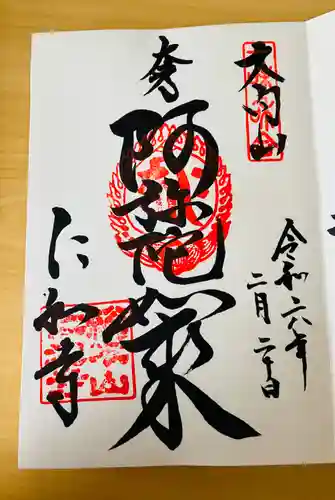 大内山
奉
阿弥陀如来
仁和寺
令和六年
二月二十日